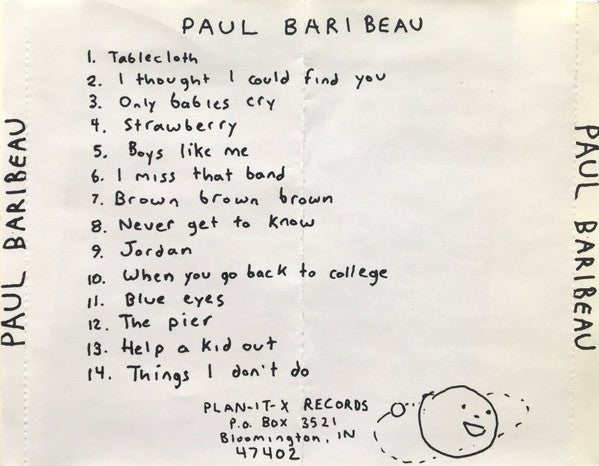 PAUL BARIBEAU
1. Tablecloth
2. I thought I could find you
3. Only babies cry
4. Strawberry
5. Boys like me
6. I miss that band
7. Brown brown brown
8. Never get to know
9. Jordan
10. When you go back to college
11. Blue eyes
12. The pier
13. Help a kid out
14. Things I don't do
PLAN-IT-X RECORDS
P.O. BOX 3521
Bloomington, IN
47402
PAUL BARIBEAU
PAUL BARIBEAU